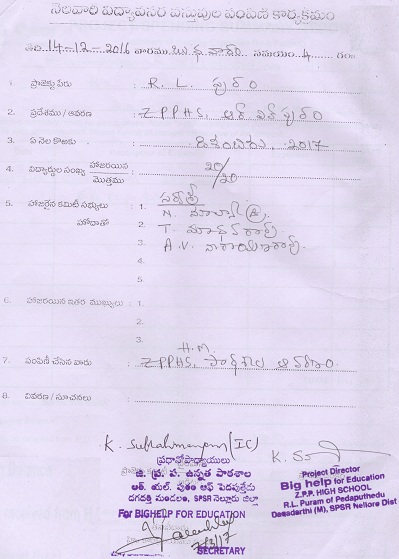 నెలవారి విద్యావసర వస్తువుల పంపిణి కార్యక్రమం
తేది 14-12-2016 వారము బుధవారం సమయం 4 గంట
1. ప్రాజెక్టు పేరు : R. L. పురం
2. ప్రదేశము / ఆవరణ : ZPPHS, ఆర్ ఎల్ పురం
3. ఏ నెల కొఱకు : డిశంబరు, 2017
4. విద్యార్థుల సంఖ్య హాజరయిన : 20/20
మొత్తము
5. హాజరైన కమిటీ సభ్యులు : 1.
హోదాతో 2. N.
3. T. మాధవరావు
A.V. నారాయణరావు.
4.
5.
6. హాజరయిన ఇతర ముఖ్యులు : 1.
2.
3.
7. పంపిణీ చేసిన వారు : H.M
ZPPHS, పాఠశాల ఆవరణం.
8. వివరణ / సూచనలు :
K. Subrahmanyam (IC)
ప్రధానోపాధ్యాయులు
జి. ప్ర. ప. ఉన్నత పాఠశాల
ఆర్. యల్. పురం ఆఫ్ పెదపుత్తేడు
దగదర్తి మండలం, SPSR నెల్లూరు జిల్లా
For BIGHELP FOR EDUCATION
7/3/17
SECRETARY
K.
Project Director
Big help for Education
Z.P.P. HIGH SCHOOL
R.L. Puram of Pedaputhedu
Dagadarthi (M), SPSR Nellore Dist